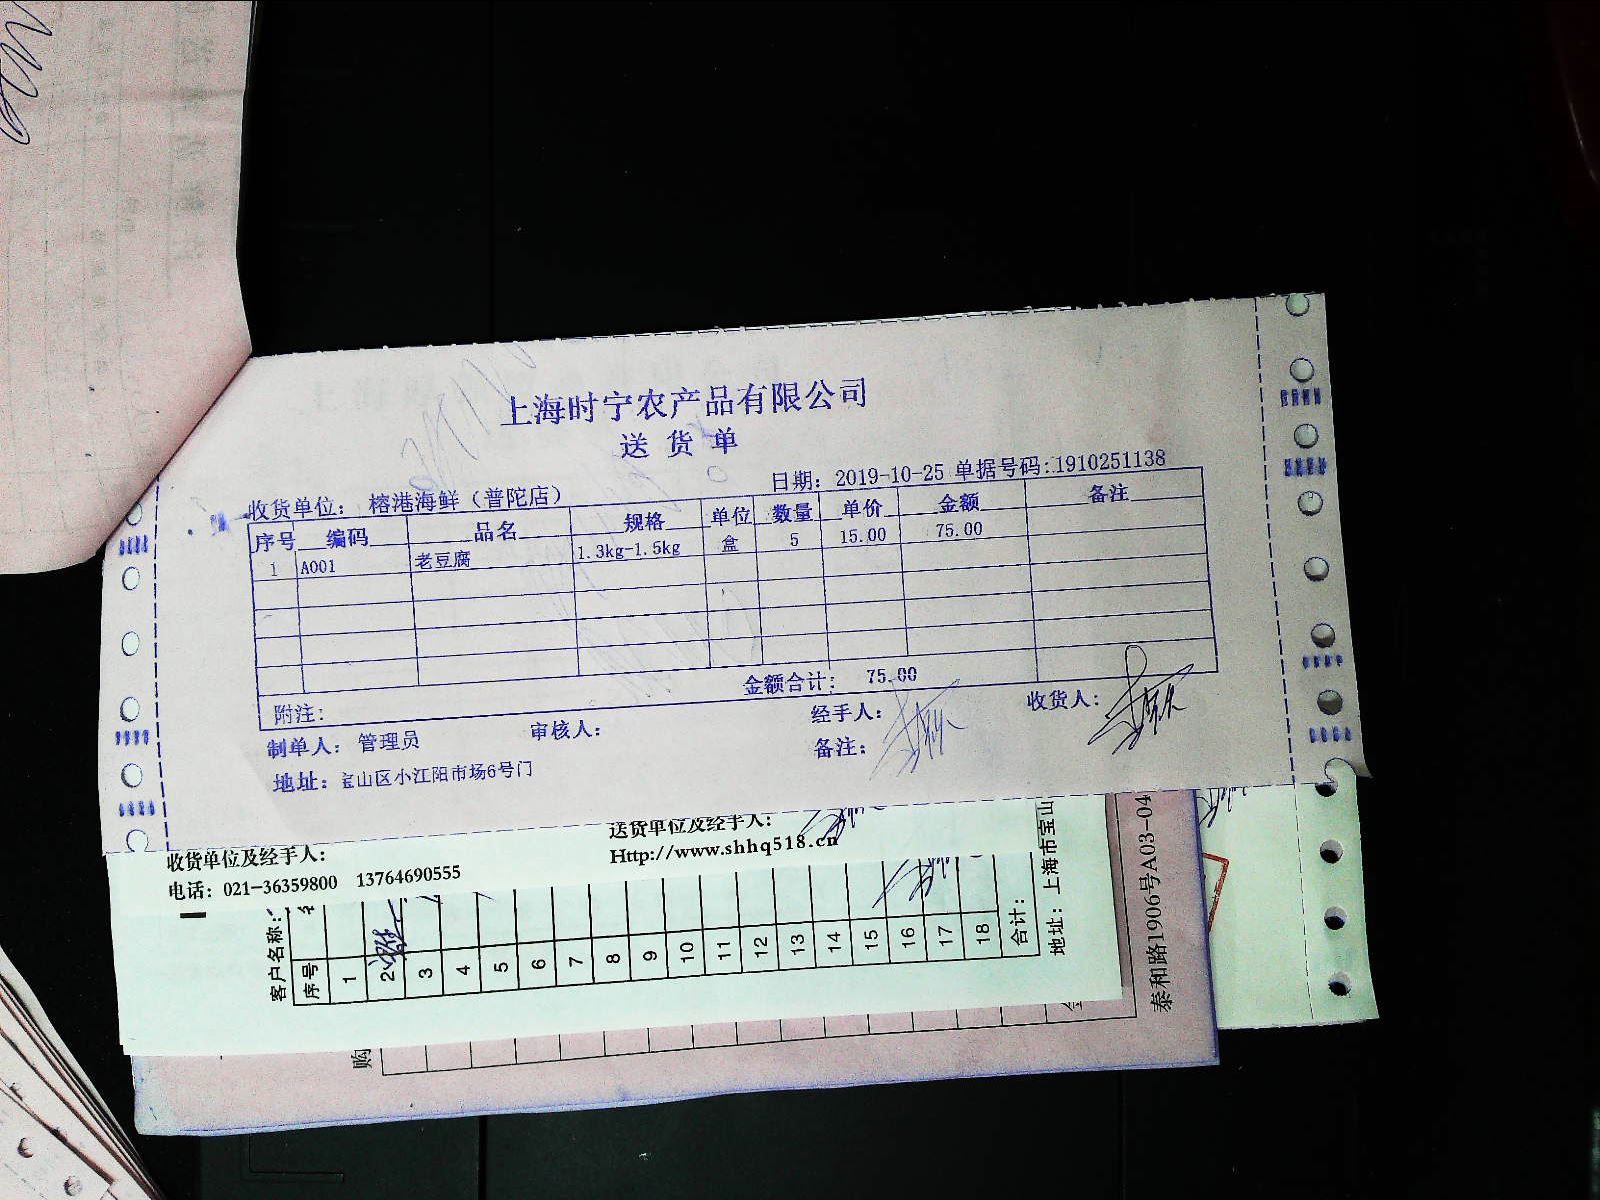 上海时宁农产品有限公司
送货单
日期：2019-10-25 单据号码:1910251138
收货单位：榕港海鲜（普陀店）
序号 编码 品名 规格 单位 数量 单价 金额 备注
1 A001 老豆腐 1.3kg-1.5kg 盒 5 15.00 75.00
金额合计： 75.00
附注：
制单人：管理员 审核人： 经手人： 收货人：
备注：
地址：宝山区小江阳市场6号门
收货单位及经手人： 送货单位及经手人：
电话：021-36359800 13764690555 Http://www.shhq518.cn
客户名称：
序号
1
2
3
4
5
6
7
8
9
10
11
12
13
14
15
16
17
18
合计：
地址：上海市宝山
购
泰和路1906号A03-04